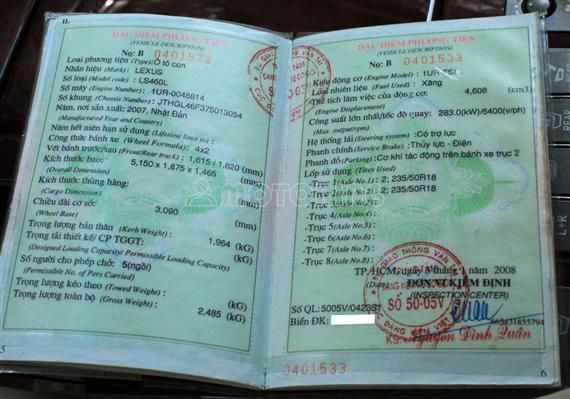 II.
ĐẶC ĐIỂM PHƯƠNG TIỆN
(VEHICLE DESCRIPTION)
No: B 0401533
Loại phương tiện (Type): Ô tô con
Nhãn hiệu (Mark) : LEXUS
Số loại (Model code) : LS460L
Số máy (Engine Number) : 1UR-0048814
Số khung (Chassis Number) : JTHGL46F375013054
Năm, nơi sản xuất: 2007, Nhật Bản
(Manufactured Year and Country)
Năm hết niên hạn sử dụng (Lifetime limit to) :
Công thức bánh xe (Wheel Formula) : 4x2
Vết bánh trước/sau (Front/Rear track) : 1,615 / 1,620 (mm)
Kích thước bao 5,150 x 1,875 x 1,465 (mm)
(Overall Dimension)
Kích thước thùng hàng: (mm)
(Cargo Dimension)
Chiều dài cơ sở: 3,090 (mm)
(Wheel Base)
Trọng lượng bản thân (Kerb Weight) : 1,964 (kG)
Trọng tải thiết kế/ CP TGGT: (kG)
(Designed Loading Capacity/ Permissible Loading Capacity)
Số người cho phép chở: 5(ngồi)
(Permissible No. of Pers Carried)
Trọng lượng kéo theo (Towed Weight) : (kG)
Trọng lượng toàn bộ (Gross Weight) : 2,485 (kG)
5
ĐẶC ĐIỂM PHƯƠNG TIỆN
(VEHICLE DESCRIPTION)
No: B 0401533
Kiểu động cơ (Engine Model) : 1UR
Loại nhiên liệu (Fuel Used) : Xăng
Thể tích làm việc của động cơ: 4,608 (cm3)
(Engine Displacement)
Công suất lớn nhất/tốc độ quay: 283.0(kW)/6400(v/ph)
(Max. output/rpm)
Hệ thống lái (Steering system) : Có trợ lực
Phanh chính (Service Brake) : Thủy lực - Điện
Phanh đỗ (Parking) : Cơ khí tác động trên bánh xe trục 2
Lốp sử dụng (Tires Used)
-Trục 1(Asle No.1) : 2; 235/50R18
-Trục 2(Asle No.2) : 2; 235/50R18
-Trục 3(Asle No.3) :
-Trục 4(Asle No.4) :
-Trục 5(Asle No.5) :
-Trục 6(Asle No.6) :
-Trục 7(Asle No.7) :
-Trục 8(Asle No.8) :
TP.HCM, ngày tháng 1 năm 2008
(Date) ĐƠN VỊ KIỂM ĐỊNH
(INSPECTION CENTER)
SỐ 50-05V
Số QL: 5005V/04233
Biển ĐK:
KS. Nguyễn Đình Quân
0401533
6